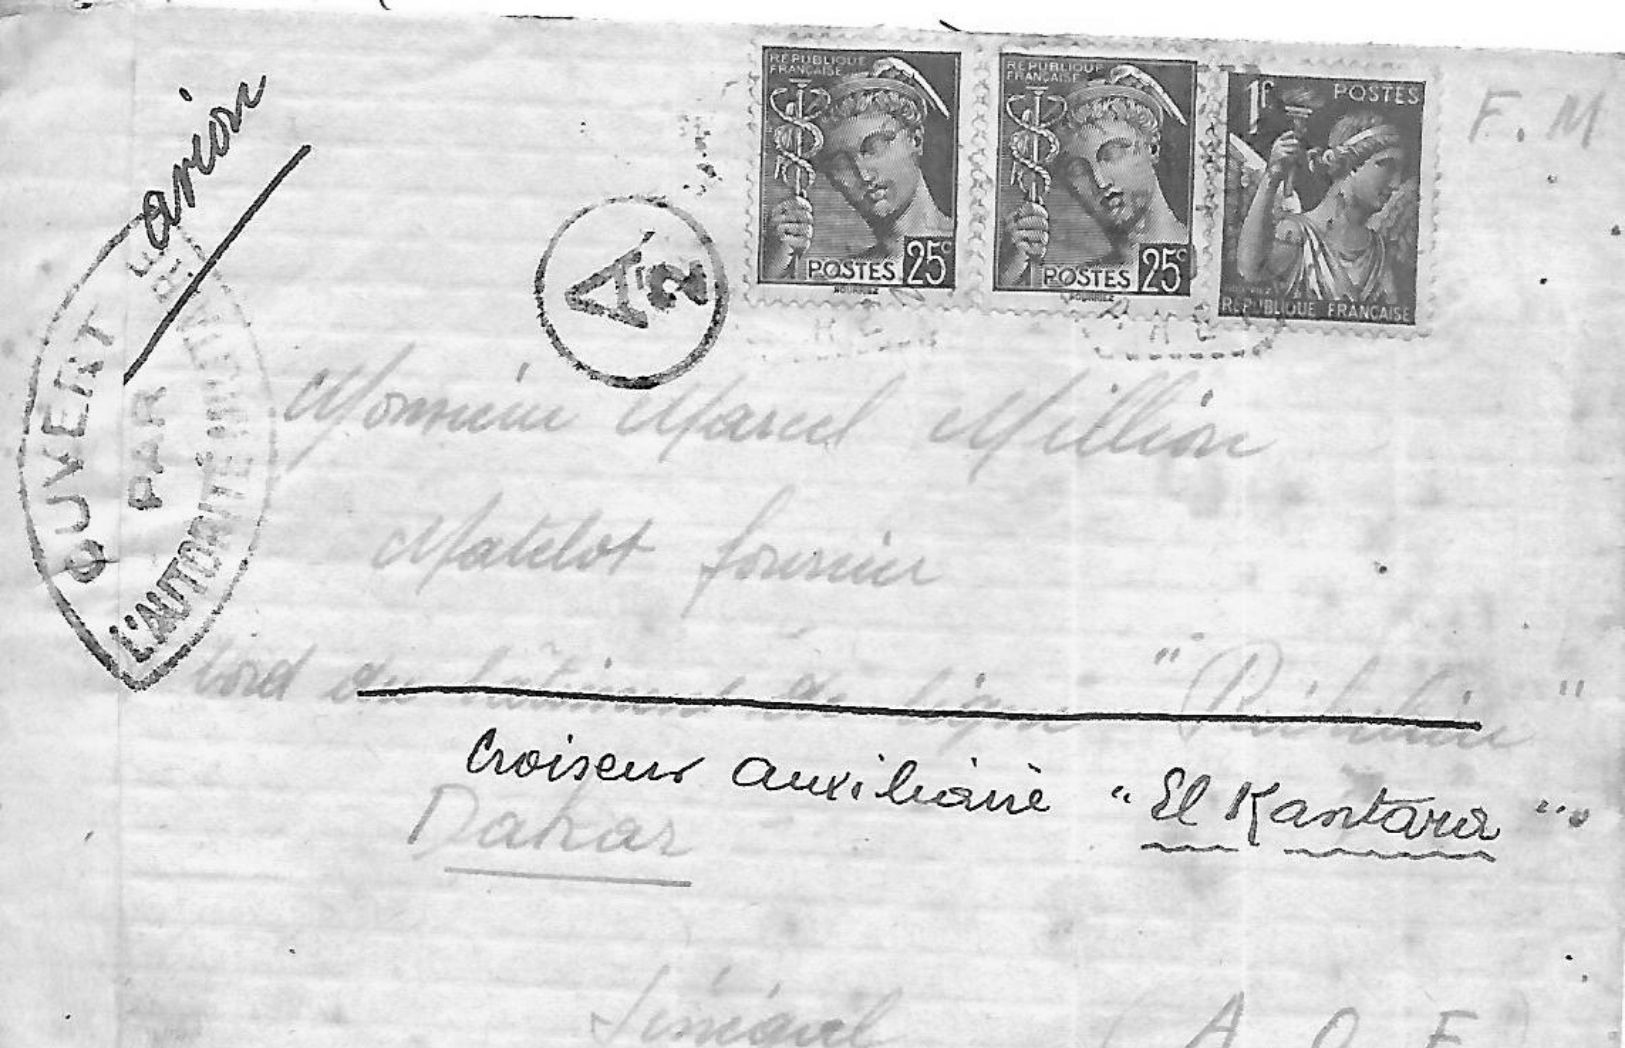 avion
RÉPUBLIQUE FRANÇAISE
POSTES 25c
RÉPUBLIQUE FRANÇAISE
POSTES 25c
1f POSTES
RÉPUBLIQUE FRANÇAISE
F. M
A2
OUVERT
PAR
L'AUTORITÉ MILITAIRE
Monsieur Marcel Million
Matelot fourrier
bord du bâtiment de ligne "Richelieu"
Croiseur auxiliaire "El Kantara"
Dakar
Sénégal (A O F)